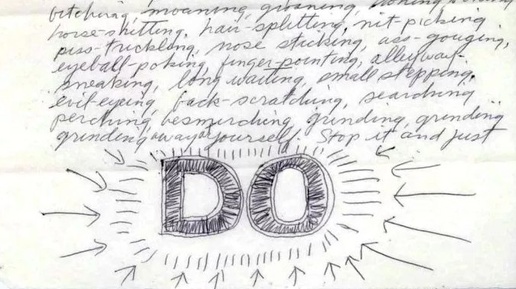 bitching, moaning, groaning,
horse-shitting, hair-splitting, nit-picking
piss-trickling, nose sticking, ass-gouging,
eyeball-poking, finger-pointing, alleyway-
sneaking, long waiting, small stepping,
evil-eyeing, back-scratching, searching
perching, besmirching, grinding, grinding
grinding away at yourself. Stop it and just
DO